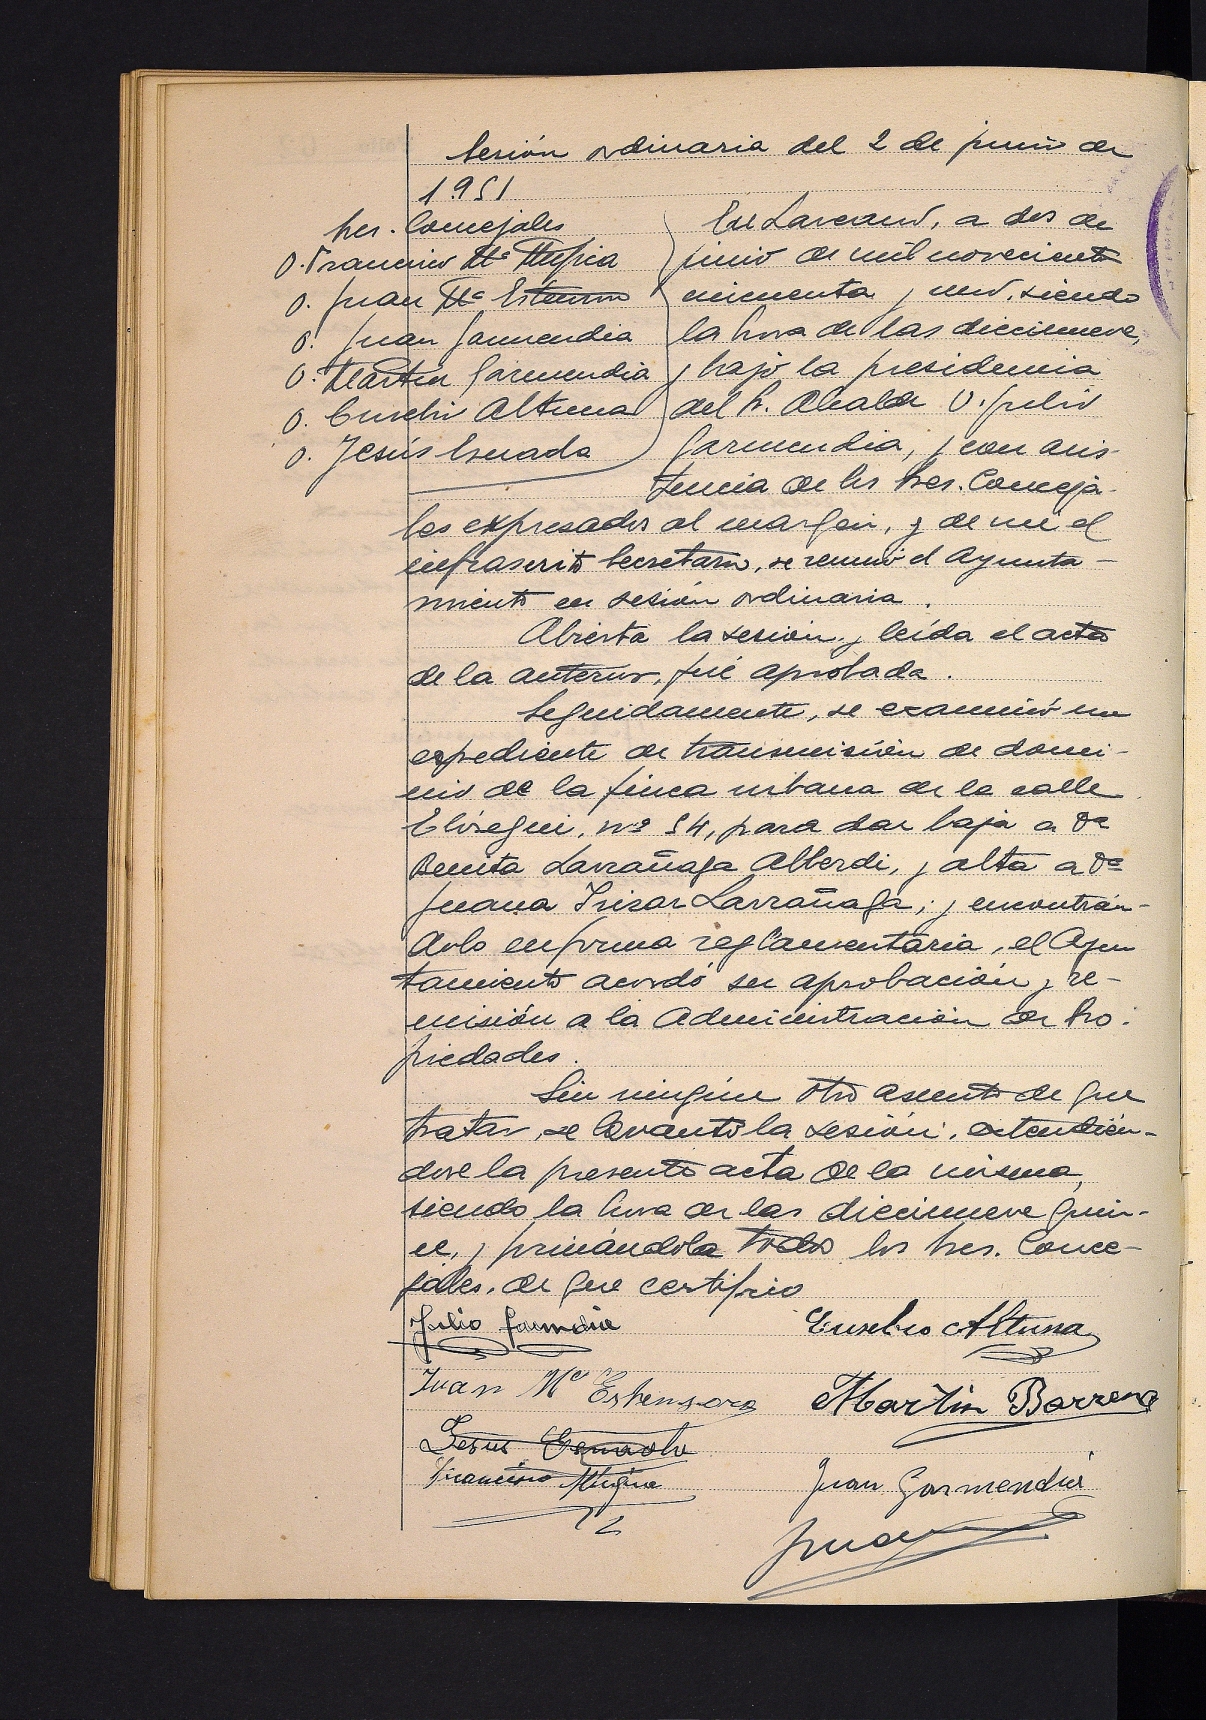 Sesión ordinaria del 2 de junio de
1951
Sres. Concejales
D. Francisco Mª Mujica
D. Juan Mª Estensoro
D. Juan Garmendia
D. Martin Garmendia
D. Eusebio Altuna
D. Jesús Esnaola
En Lazcano, a dos de
junio de mil novecientos
cincuenta y uno, siendo
la hora de las diecinueve,
y bajo la presidencia
del Sr. Alcalde D. Julio
Garmendia, y con asis-
tencia de los Sres. Conceja-
les expresados al margen, y de mi el
infrascrito Secretario, se reunió el Ayunta-
miento en sesión ordinaria.
Abierta la sesión y leída el acta
de la anterior, fué aprobada.
Seguidamente, se examinó un
expediente de transmisión de domi-
nio de la finca urbana de la calle
Elósegui, nº 54, para dar baja a Dª
Benita Larrañaga Alberdi, y alta a Dª
Juana Irizar Larrañaga; y encontrán-
dolo en forma reglamentaria, el Ayun
tamiento acordó su aprobación y re-
misión a la Administración de Pro-
piedades.
Sin ningún otro asunto de que
tratar, se levantó la sesión, extendién-
dose la presente acta de la misma,
siendo la hora de las diecinueve quin-
ce, y firmándola todos los Sres. Conce-
jales, de que certifico
Julio Garmendia Eusebio Altuna
Juan Mª Estensoro Martin Barrena
Jesus Esnaola
Francisco Mujica Juan Garmendia